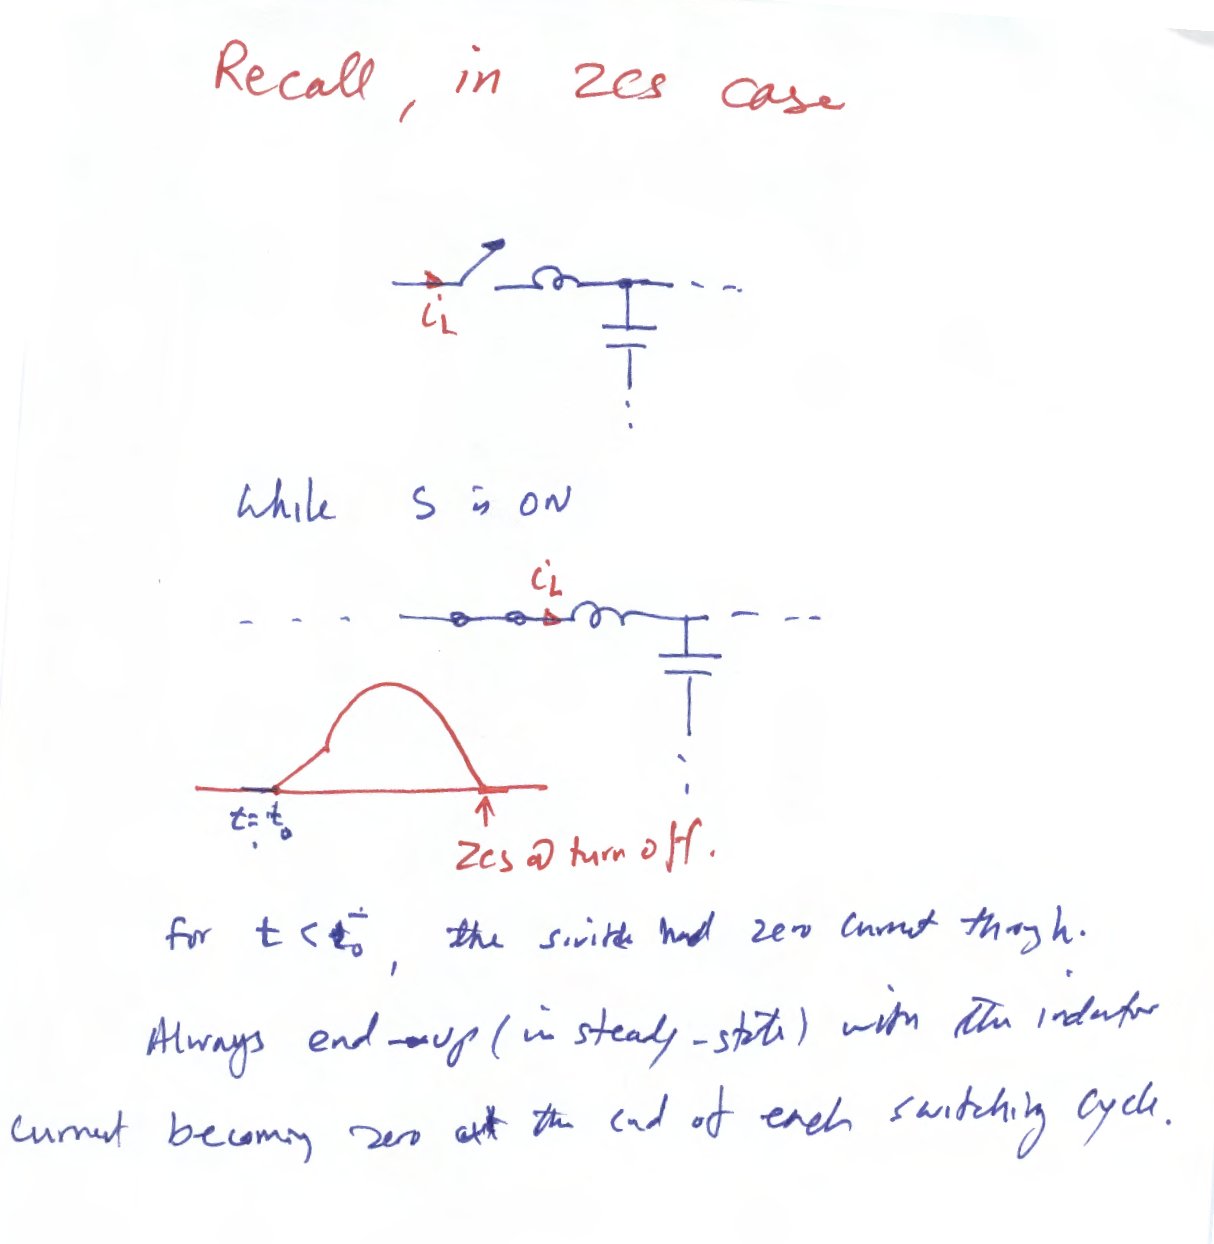 Recall, in ZCS case
iL
While S is ON
iL
t=t0
ZCS @ turn off.
for t < t0⁻, the switch had zero current through.
Always end-up (in steady-state) with the inductor
current becoming zero at the end of each switching cycle.